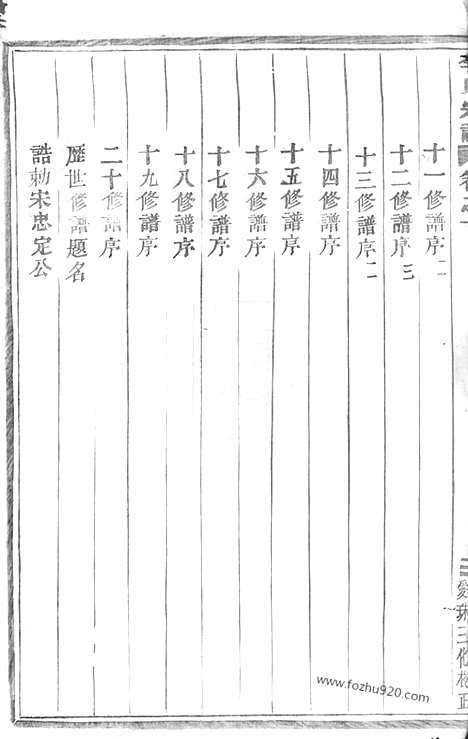 十一修譜序二
十二修譜序三
十三修譜序二
十四修譜序
十五修譜序
十六修譜序
十七修譜序
十八修譜序
十九修譜序
二十修譜序
歷世修譜題名
誥勅宋忠定公
www.fozhu920.com